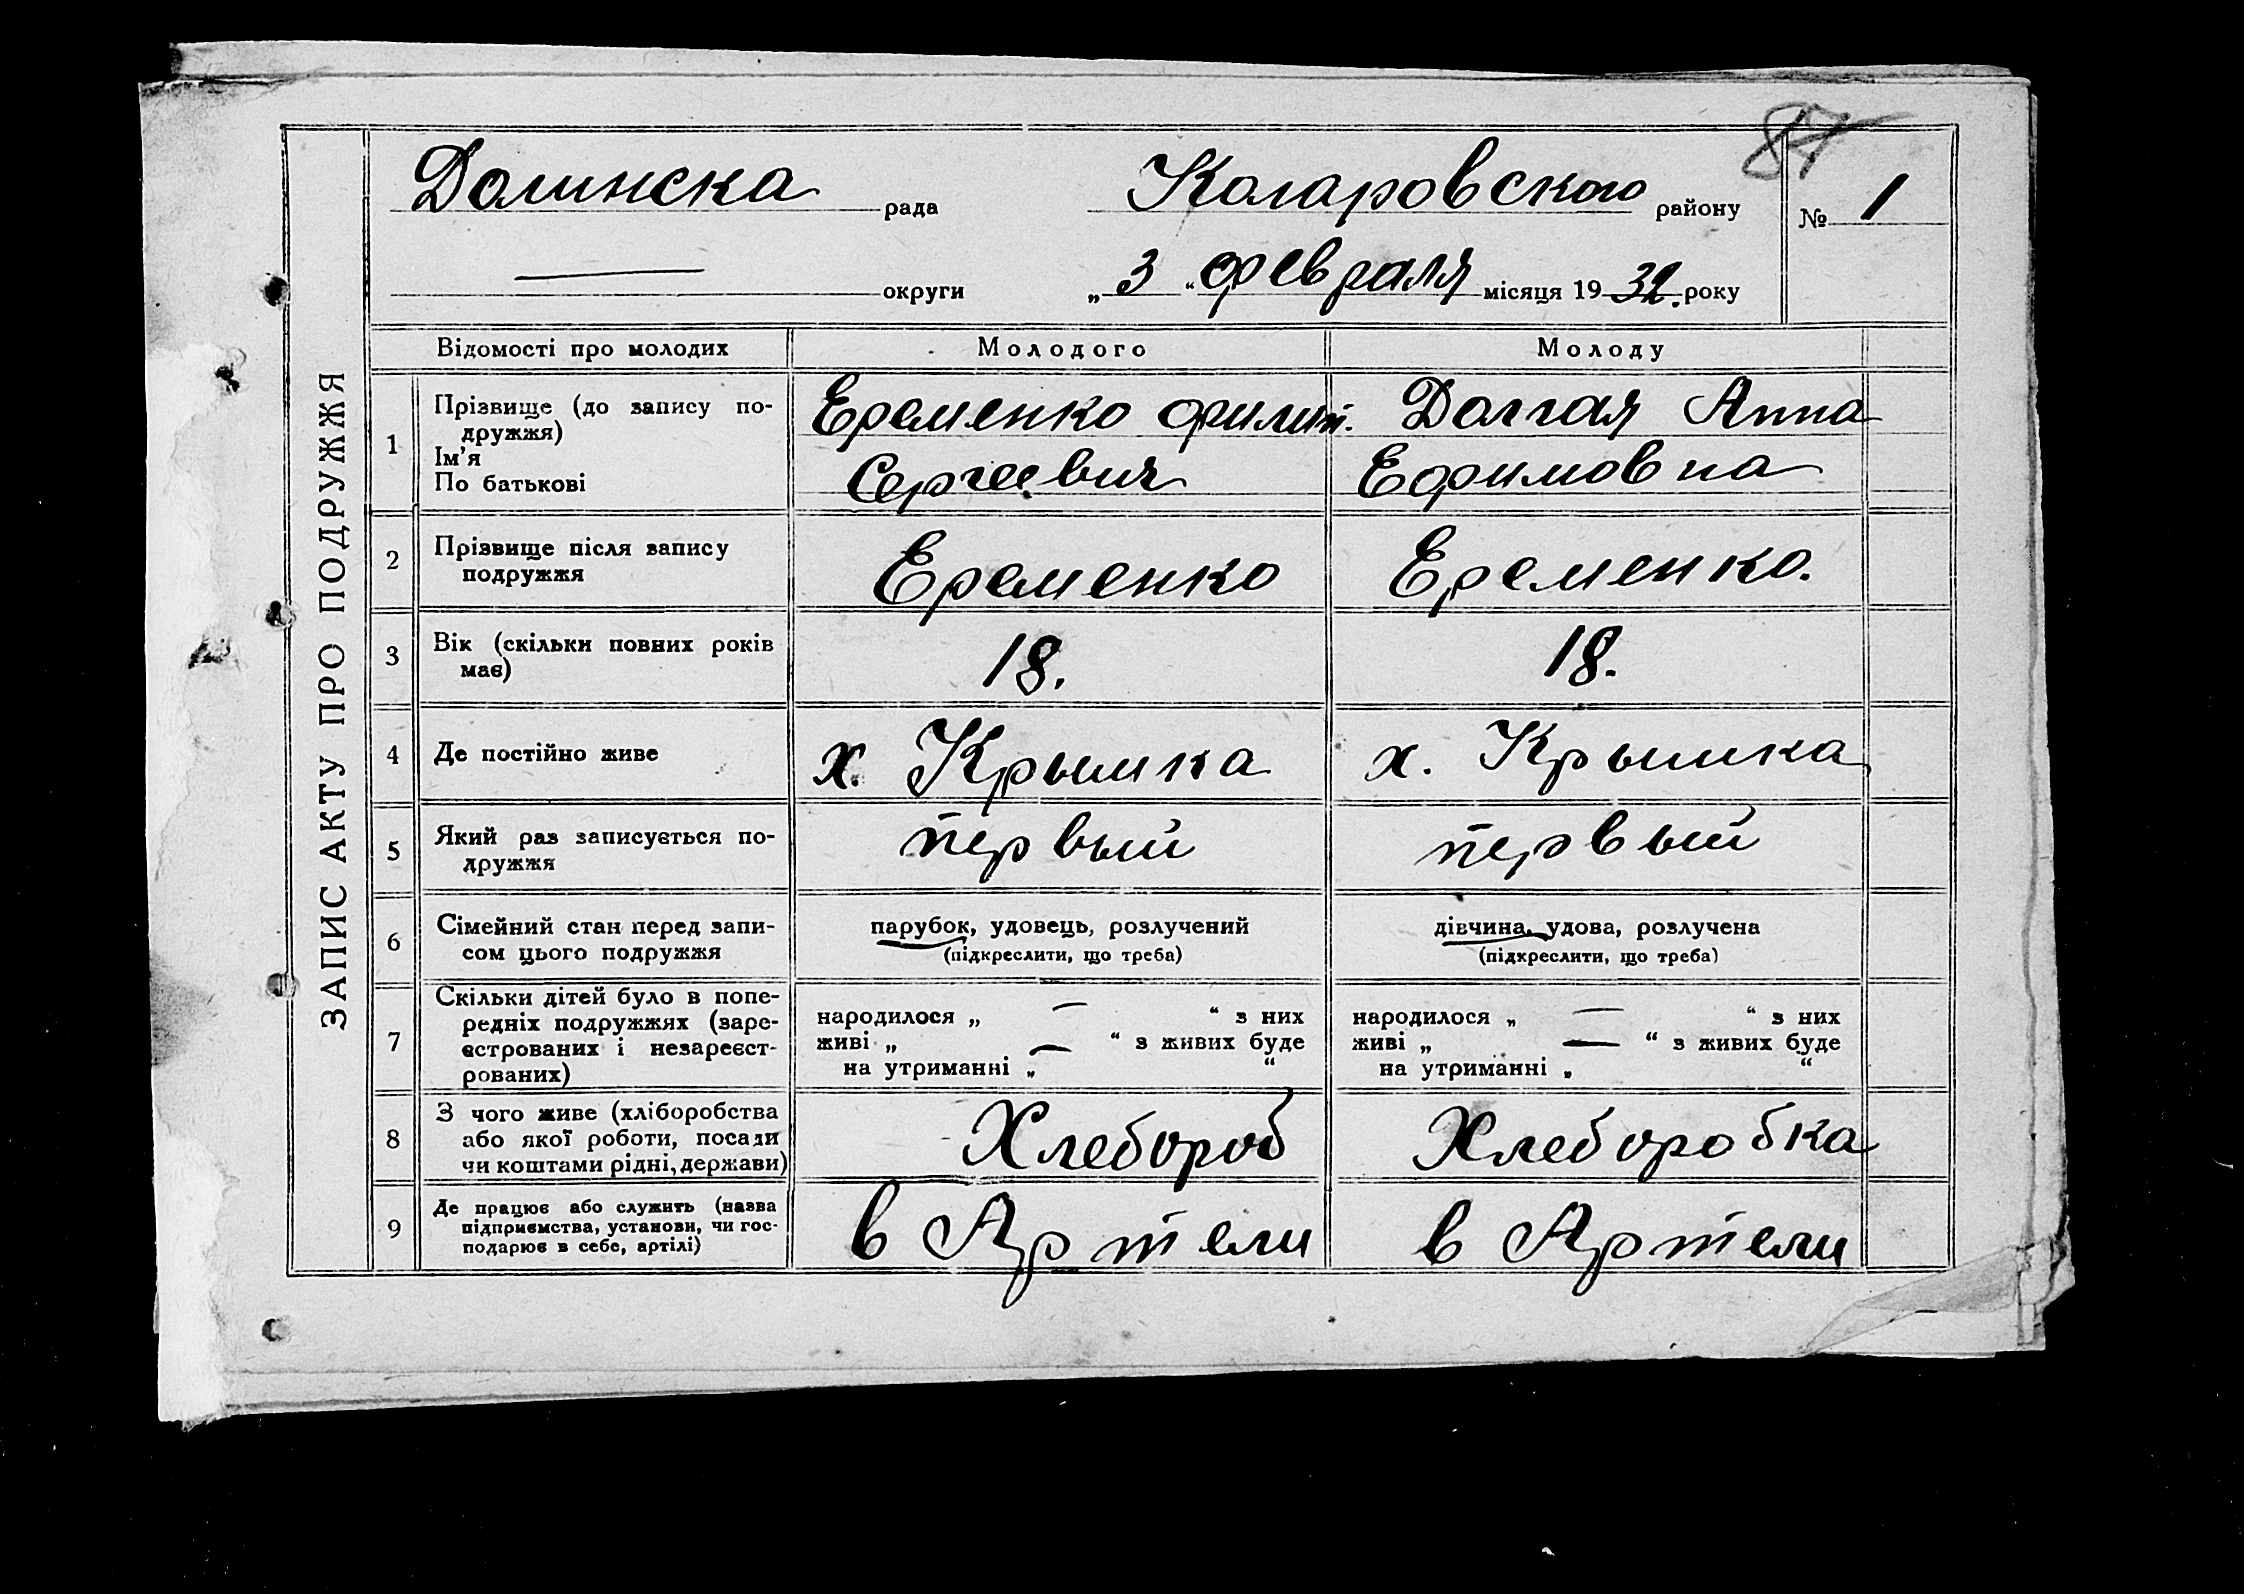 87
Долинска рада Коларовского району № 1
округи „3“ февраля місяця 1932. року
ЗАПИС АКТУ ПРО ПОДРУЖЖЯ
Відомості про молодих Молодого Молоду
1 Прізвище (до запису по-
дружжя)
Ім’я
По батькові
Еременко Филип.
Сергеевич
Долгая Анна
Ефимовна
2 Прізвище після запису
подружжя
Еременко
Еременко.
3 Вік (скільки повних років
має)
18.
18.
4 Де постійно живе
х. Крымка
х. Крымка
5 Який раз записується по-
дружжя
первый
первый
6 Сімейний стан перед запи-
сом цього подружжя
парубок, удовець, розлучений
(підкреслити, що треба)
дівчина, удова, розлучена
(підкреслити, що треба)
7 Скільки дітей було в попе-
редніх подружжях (заре-
єстрованих і незареєст-
рованих)
народилося „ — “ з них
живі „ — “ з живих буде
на утриманні „ “
народилося „ — “ з них
живі „ — “ з живих буде
на утриманні „ “
8 З чого живе (хліборобства
або якої роботи, посади
чи коштами рідні, держави)
Хлебороб
Хлеборобка
9 Де працює або служить (назва
підприємства, установи, чи гос-
подарює в себе, артілі)
в Артели
в Артели